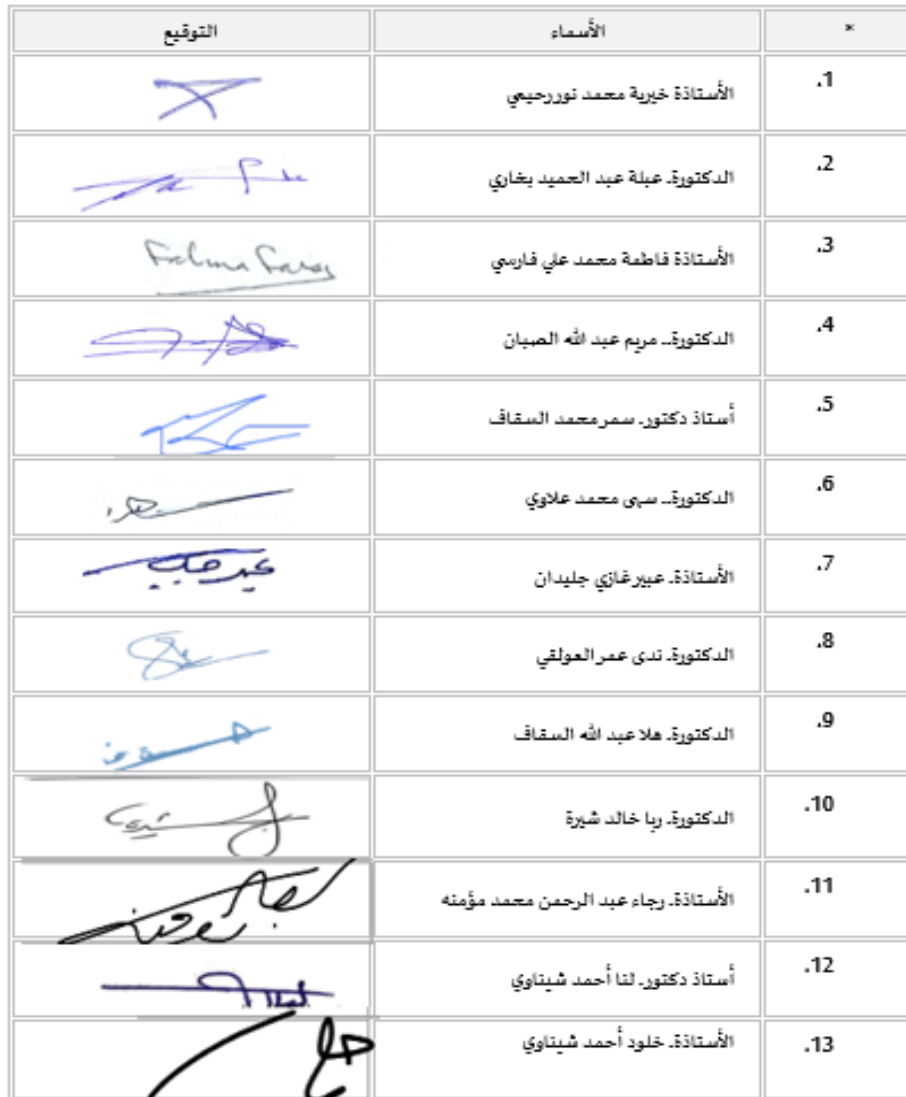 * الأسماء التوقيع
1. الأستاذة خيرية محمد نور رحيمي
2. الدكتورة. عبلة عبد الحميد بخاري
3. الأستاذة فاطمة محمد علي فارسي Fatma Farsi
4. الدكتورة. مريم عبد الله الصبان
5. أستاذ دكتور. سمر محمد السقاف
6. الدكتورة. سهى محمد علاوي
7. الأستاذة. عبير غازي جليدان
8. الدكتورة. ندى عمر العولقي
9. الدكتورة. هلا عبد الله السقاف
10. الدكتورة. ربا خالد شيرة
11. الأستاذة. رجاء عبد الرحمن محمد مؤمنه
12. أستاذ دكتور. لنا أحمد شيناوي
13. الأستاذة. خلود أحمد شيناوي